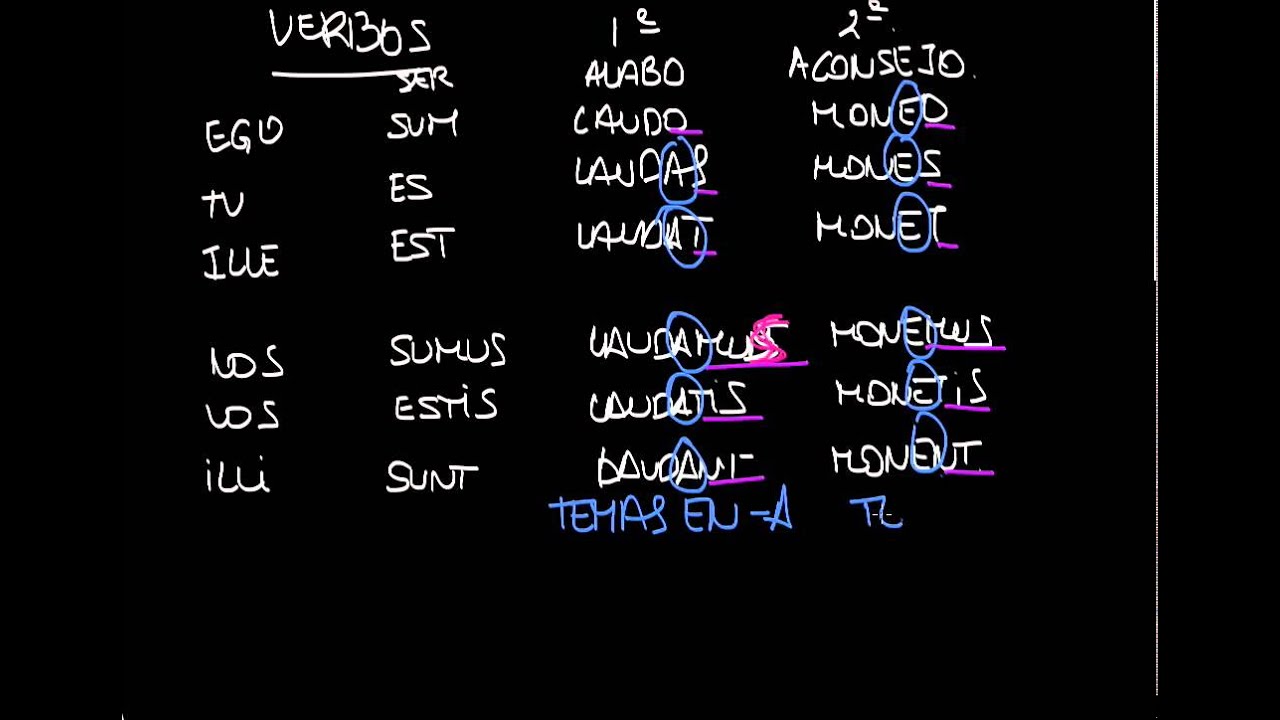 VERBOS 1ª 2ª
SER ALABO ACONSEJO.
EGO SUM LAUDO MONEO
TU ES LAUDAS MONES
ILLE EST LAUDAT MONET
NOS SUMUS LAUDAMUS MONEMUS
VOS ESTIS LAUDATIS MONETIS
ILLI SUNT LAUDANT MONENT
TEMAS EN -A TE